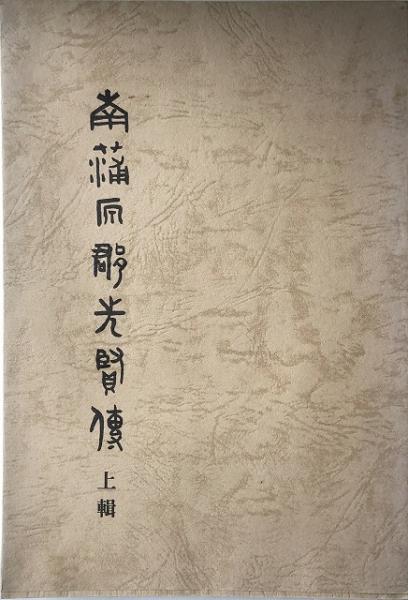 南蒲原郡先賢傳
上輯